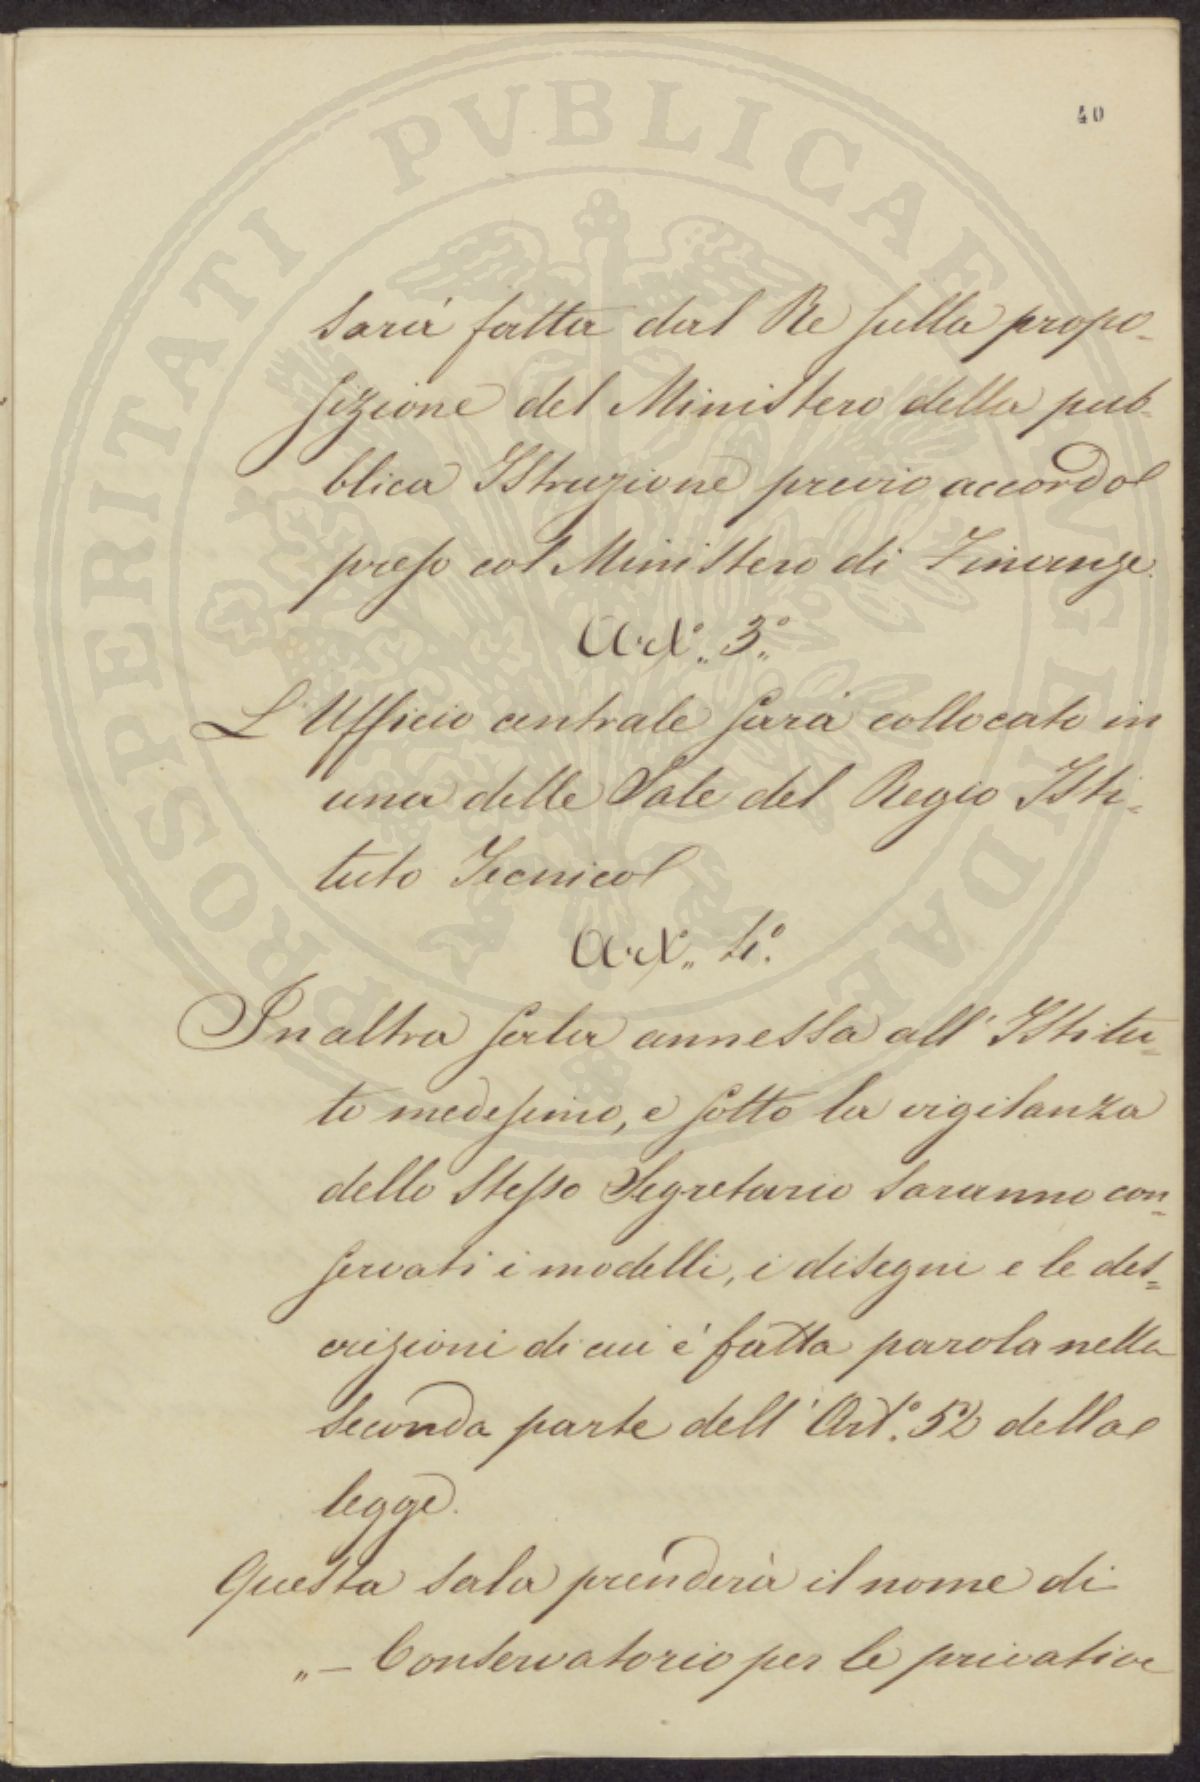 40
PROSPERITATI PVBLICAE AVGENDAE
sarà fatta dal Re sulla propo-
sizione del Ministero della pub-
blica Istruzione previo accordo
preso col Ministero di Finanze.
Art.° 3.°
L'Ufficio centrale sarà collocato in
una delle Sale del Regio Isti=
tuto Tecnico
Art.° 4.°
In altra sala annessa all'Istitu=
to medesimo, e sotto la vigilanza
dello stesso Segretario saranno con=
servati i modelli, i disegni e le des=
crizioni di cui è fatta parola nella
seconda parte dell'Art.° 52 della
legge.
Questa sala prenderà il nome di
„— Conservatorio per le privative